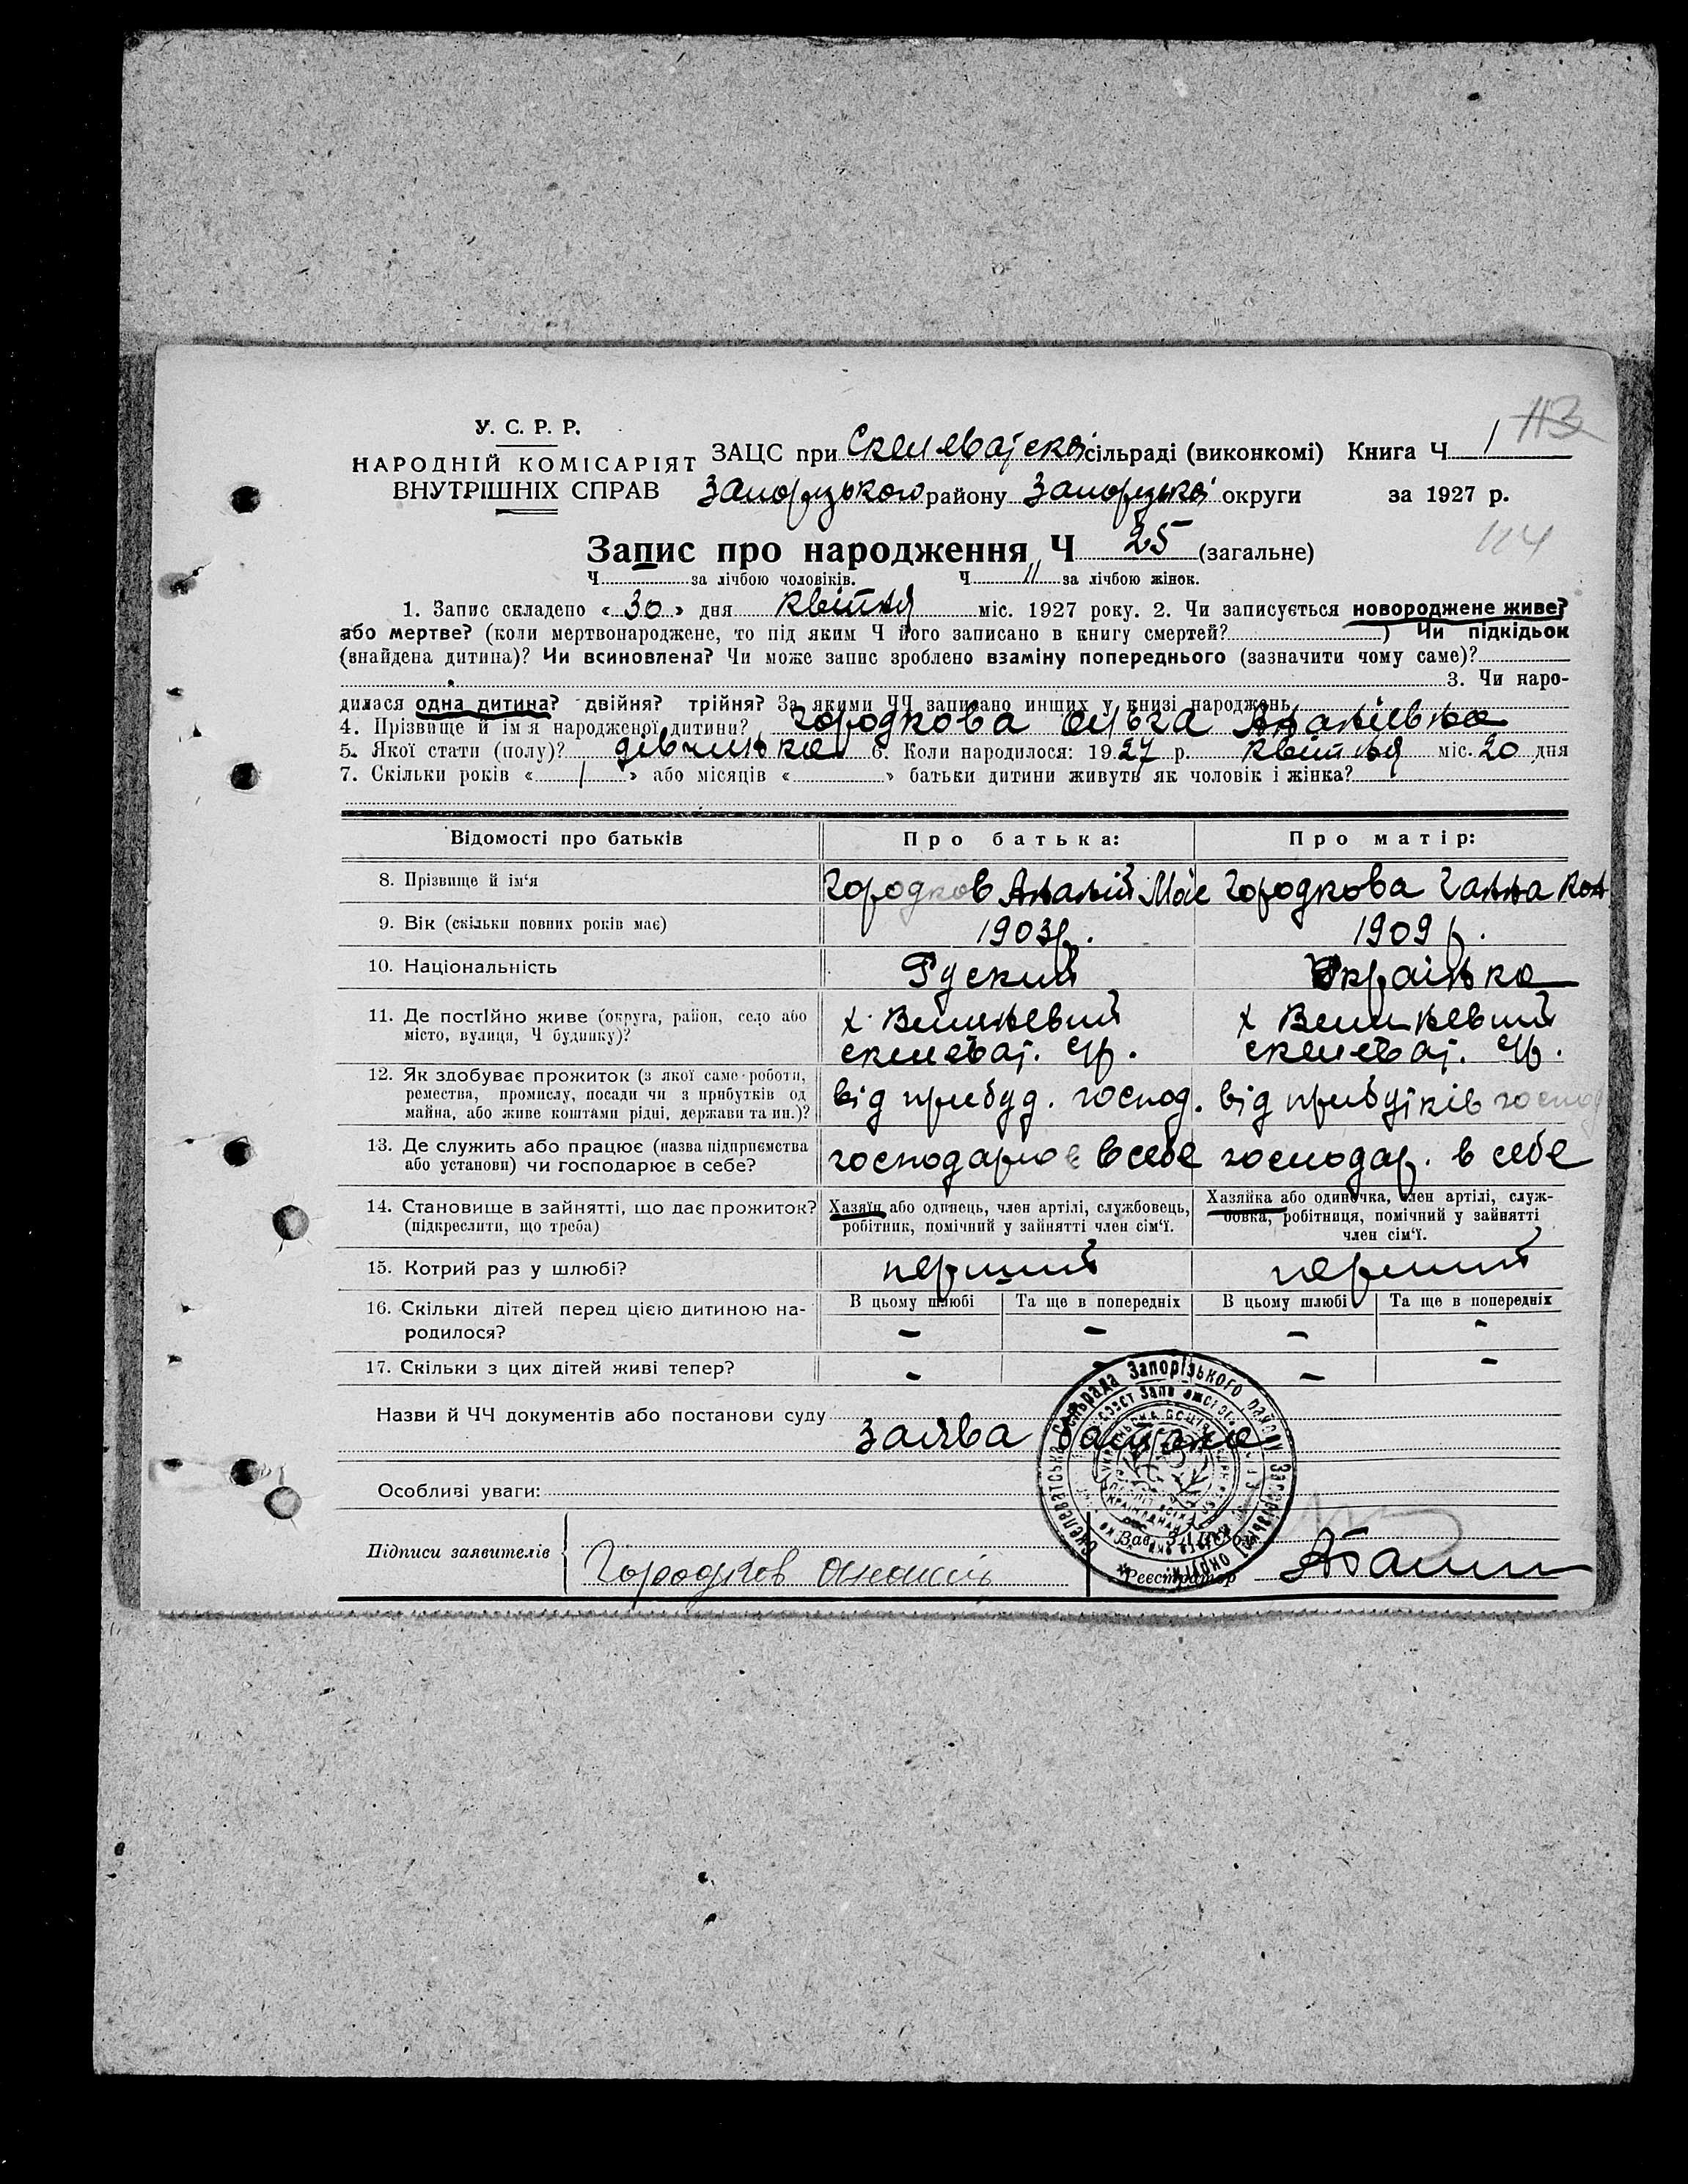 113
У. С. Р. Р.
НАРОДНІЙ КОМІСАРІЯТ
ВНУТРІШНІХ СПРАВ
ЗАЦС при Скелеватській сільраді (виконкомі) Книга Ч 1
Запорізького району Запорізької округи за 1927 р.
114
Запис про народження Ч 25 (загальне)
Ч за лічбою чоловіків. Ч 11 за лічбою жінок.
1. Запис складено «30» дня квітня міс. 1927 року. 2. Чи записується новороджене живе?
або мертве? (коли мертвонароджене, то під яким Ч його записано в книгу смертей? ) Чи підкідьок
(знайдена дитина)? Чи всиновлена? Чи може запис зроблено взаміну попереднього (зазначити чому саме)?
3. Чи наро-
дилася одна дитина? двійня? трійня? За якими ЧЧ записано инших у книзі народжень
4. Прізвище й ім'я народженої дитини? Городкова Ольга Ананіевна
5. Якої стати (полу)? дівчинка 6. Коли народилося: 1927 р. квітня міс. 20 дня
7. Скільки років « 1 » або місяців « » батьки дитини живуть як чоловік і жінка?
Відомості про батьків Про батька: Про матір:
8. Прізвище й ім'я Городков Ананій Мой Городкова Ганна Кон
9. Вік (скільки повних років має) 1903 р. 1909 р.
10. Національність Руский Українка
11. Де постійно живе (округа, район, село або
місто, вулиця, Ч будинку)?
х. Вишневий
скелеват. с/р.
х Вишневий
скелеват. с/р.
12. Як здобуває прожиток (з якої саме роботи,
ремества, промислу, посади чи з прибутків од
майна, або живе коштами рідні, держави та ин.)?
від прибуд. господ. від прибутків господ
13. Де служить або працює (назва підприємства
або установи) чи господарює в себе?
господарює в себе господар. в себе
14. Становище в зайнятті, що дає прожиток?
(підкреслити, що треба)
Хазяїн або одинець, член артілі, службовець,
робітник, помічний у зайнятті член сім'ї.
Хазяйка або одиночка, член артілі, служ-
бовка, робітниця, помічний у зайнятті
член сім'ї.
15. Котрий раз у шлюбі? перший перший
16. Скільки дітей перед цією дитиною на-
родилося?
В цьому шлюбі Та ще в попередніх В цьому шлюбі Та ще в попередніх
– – – –
17. Скільки з цих дітей живі тепер? – – – –
Назви й ЧЧ документів або постанови суду
заява батька
Скелеватська сільрада Запорізького району Запорізької округи
Особливі уваги:
Зав. ЗАЦСом
Підписи заявителів Городков
Реєстратор